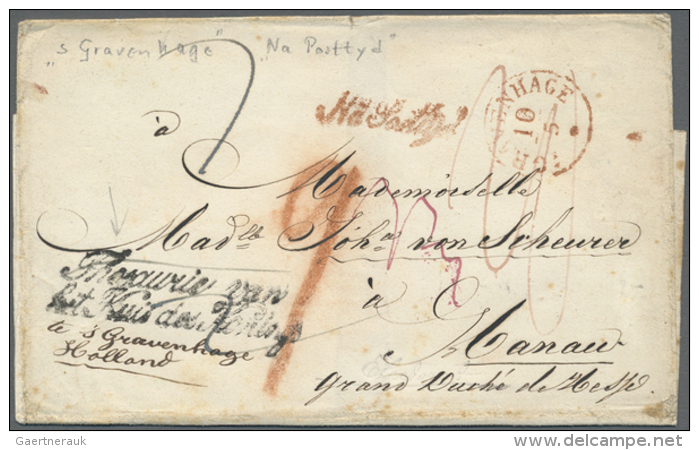 "'s Gravenhage" "Na Posttyd"
Na Posttyd
GRAVENHAGE
10
5
à
Mademoiselle
Mad.lle Joh.a von Scheurer
à
Hanau
Grand Duché de Hesse.
Thesaurie van
het Huis des Konings
te 's Gravenhage
Holland
Gaertnerauk
delcampe.net